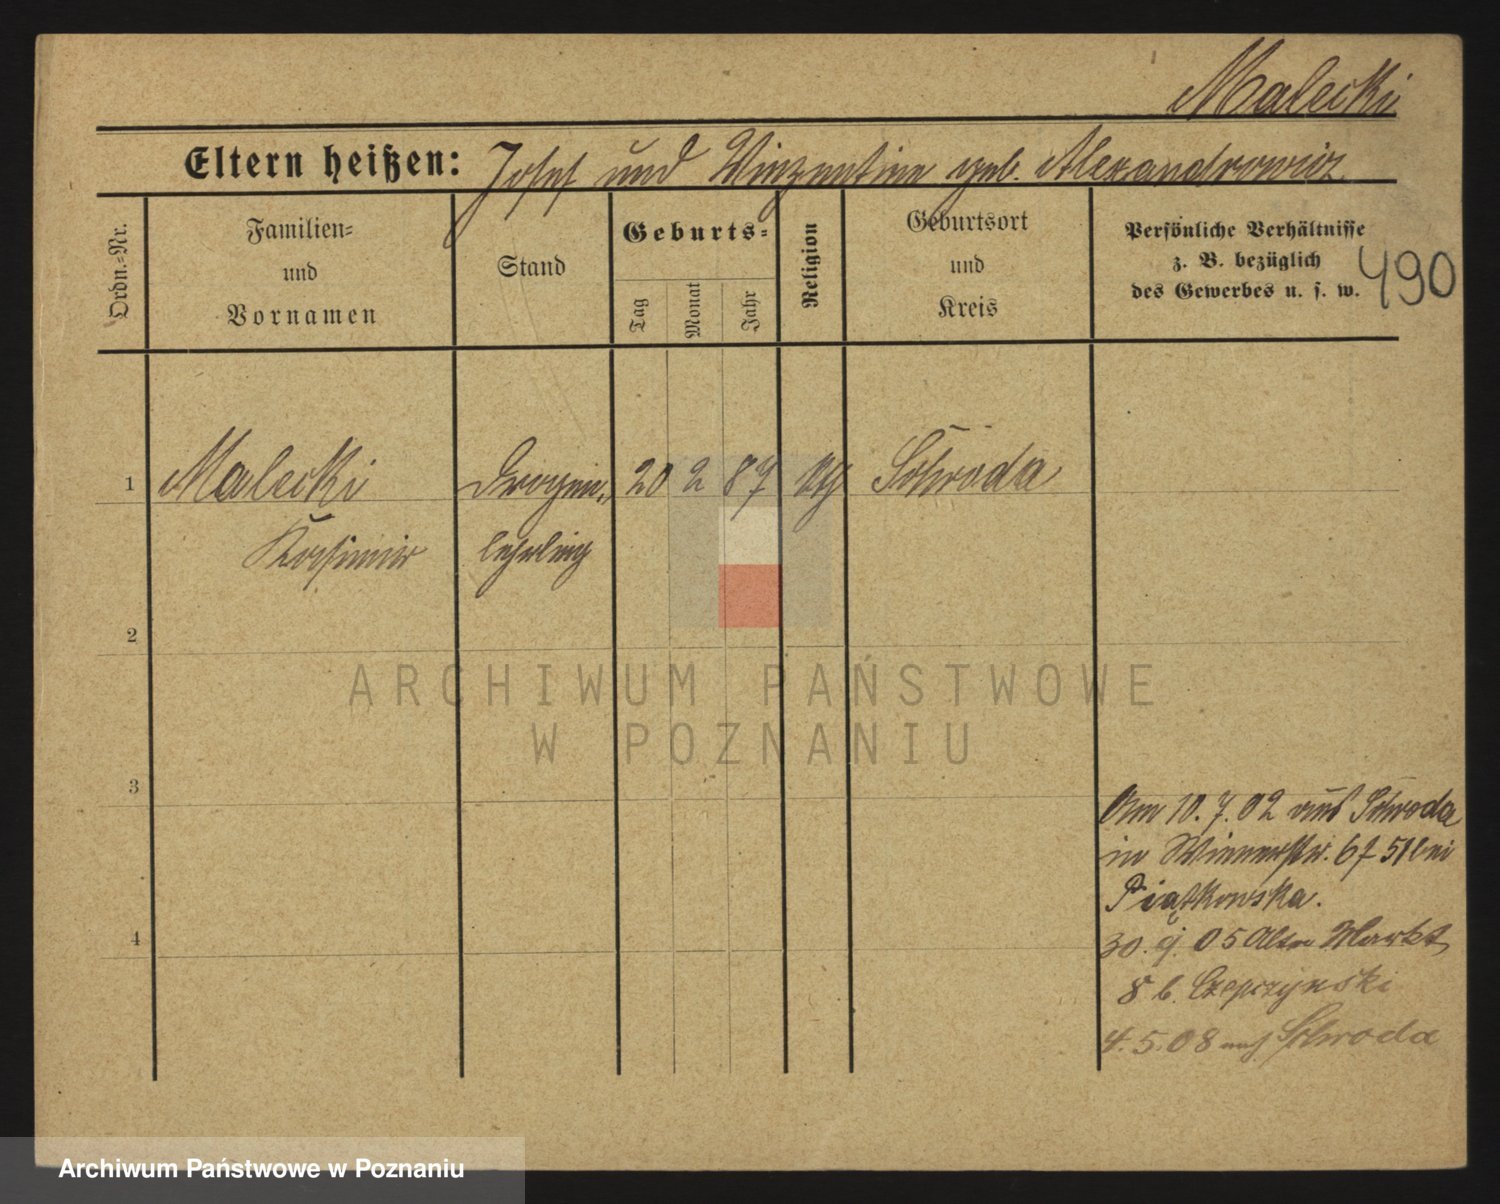 Malecki
Eltern heißen: Josef und Vinzentine geb. Alexandrowicz
Ordn.-Nr.
Familien-
und
Vornamen
Stand
Geburts-
Tag
Monat
Jahr
Religion
Geburtsort
und
Kreis
Persönliche Verhältnisse
z. B. bezüglich
des Gewerbes u. s. w.
490
1 Malecki Drogen- 20 2 87 Schroda
Kasimir lehrling
2
3
4
Am 10.7.02 aus Schroda
in Wienerstr. 67 bei
Piątkowska.
30.9.05 Alter Markt
8 b. Czepczyński
4.5.08 nach Schroda
ARCHIWUM PAŃSTWOWE
W POZNANIU
Archiwum Państwowe w Poznaniu